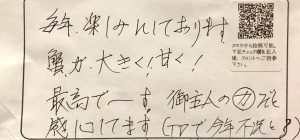 毎年、楽しみにしております
蟹が大きく！甘く！
最高でーす。御主人の力だと
感心してます
スマホから投稿可能。
下記チェック欄を記入
後、フロントへご持参
下さい。